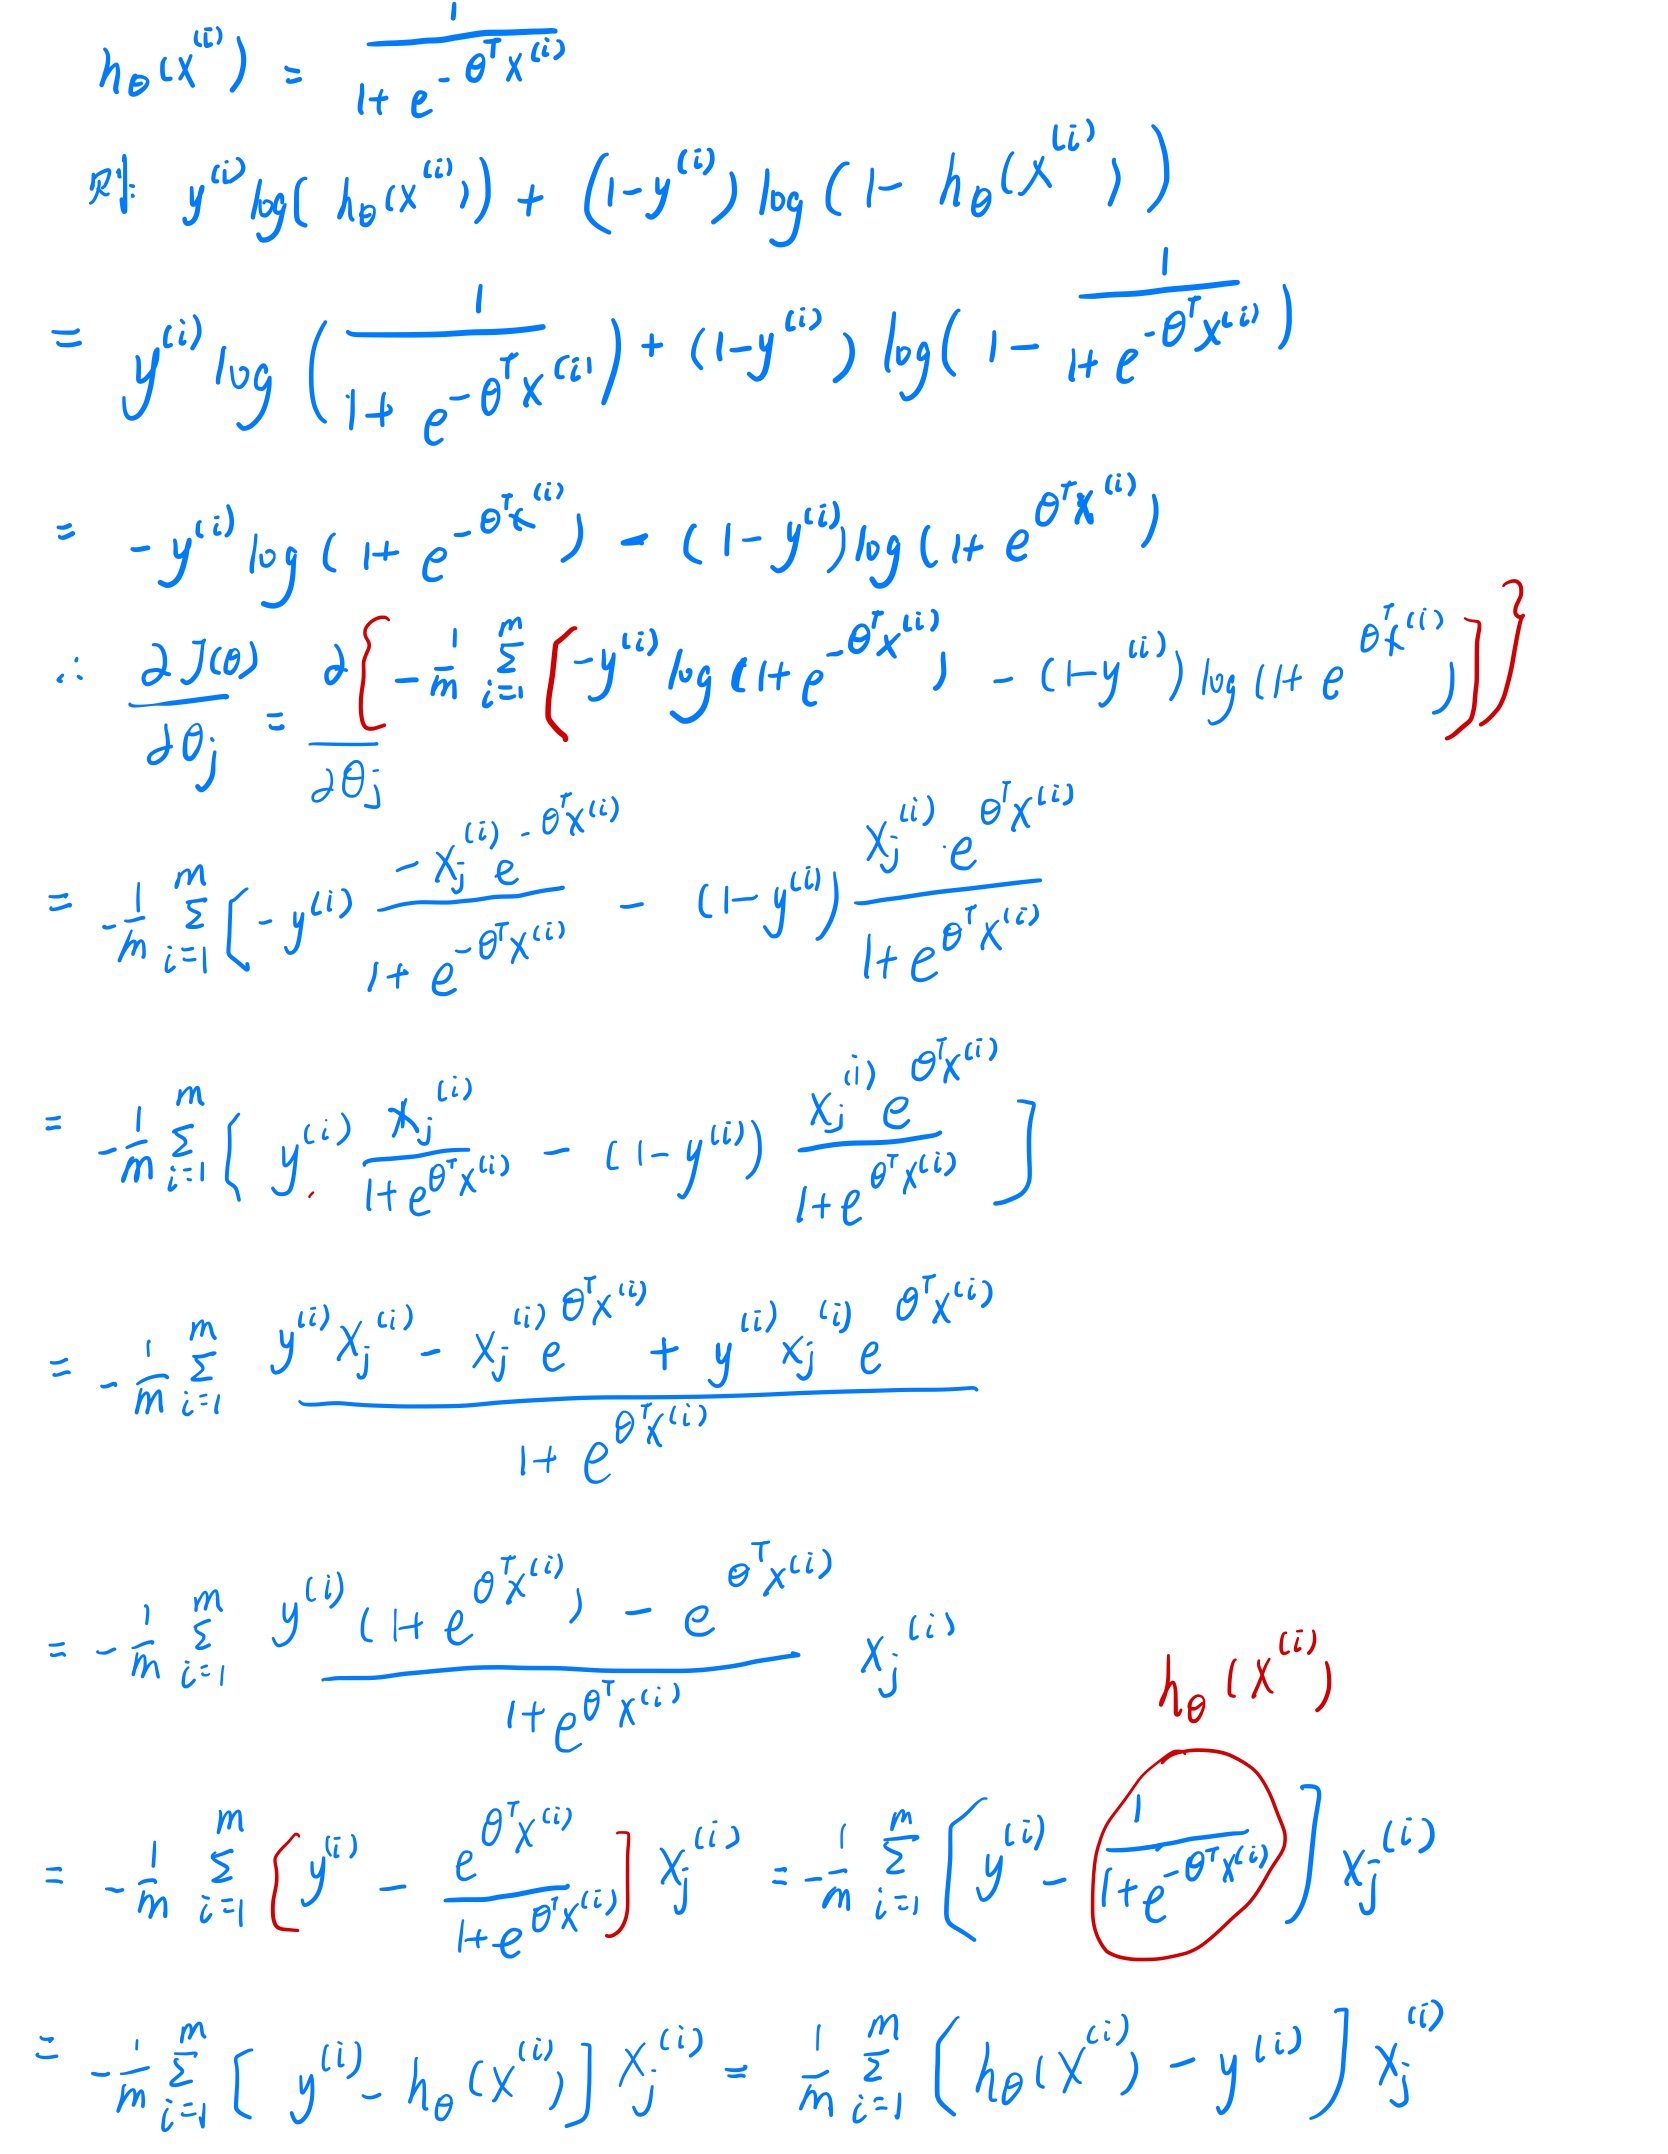 h_θ(x^(i)) = 1/(1+e^(-θ^T x^(i)))
则: y^(i) log(h_θ(x^(i))) + (1-y^(i)) log(1-h_θ(x^(i)))
= y^(i) log(1/(1+e^(-θ^T x^(i)))) + (1-y^(i)) log(1-1/(1+e^(-θ^T x^(i))))
= -y^(i) log(1+e^(-θ^T x^(i))) - (1-y^(i)) log(1+e^(θ^T x^(i)))
∴ ∂J(θ)/∂θ_j = ∂{-1/m Σ_{i=1}^m [-y^(i) log(1+e^(-θ^T x^(i))) - (1-y^(i)) log(1+e^(θ^T x^(i)))]}/∂θ_j
= -1/m Σ_{i=1}^m [-y^(i) (-x_j^(i) e^(-θ^T x^(i)))/(1+e^(-θ^T x^(i))) - (1-y^(i)) (x_j^(i)·e^(θ^T x^(i)))/(1+e^(θ^T x^(i)))
= -1/m Σ_{i=1}^m [y^(i) x_j^(i)/(1+e^(θ^T x^(i))) - (1-y^(i)) (x_j^(i) e^(θ^T x^(i)))/(1+e^(θ^T x^(i)))]
= -1/m Σ_{i=1}^m (y^(i) x_j^(i) - x_j^(i) e^(θ^T x^(i)) + y^(i) x_j^(i) e^(θ^T x^(i)))/(1+e^(θ^T x^(i)))
= -1/m Σ_{i=1}^m (y^(i) (1+e^(θ^T x^(i))) - e^(θ^T x^(i)))/(1+e^(θ^T x^(i))) x_j^(i)
h_θ(x^(i))
= -1/m Σ_{i=1}^m [y^(i) - e^(θ^T x^(i))/(1+e^(θ^T x^(i)))] x_j^(i) = -1/m Σ_{i=1}^m [y^(i) - 1/(1+e^(-θ^T x^(i)))] x_j^(i)
= -1/m Σ_{i=1}^m [y^(i) - h_θ(x^(i))] x_j^(i) = 1/m Σ_{i=1}^m [h_θ(x^(i)) - y^(i)] x_j^(i)